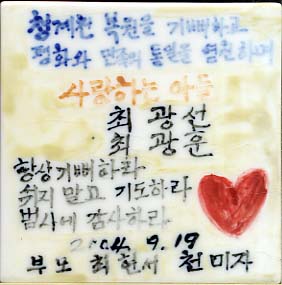 청계천 복원을 기뻐하고
평화와 민족의 통일을 염원하며
사랑하는 아들
최광선
최광훈
항상 기뻐하라
쉬지 말고 기도하라
범사에 감사하라
2004. 9. 19
부모 최현서 천미자